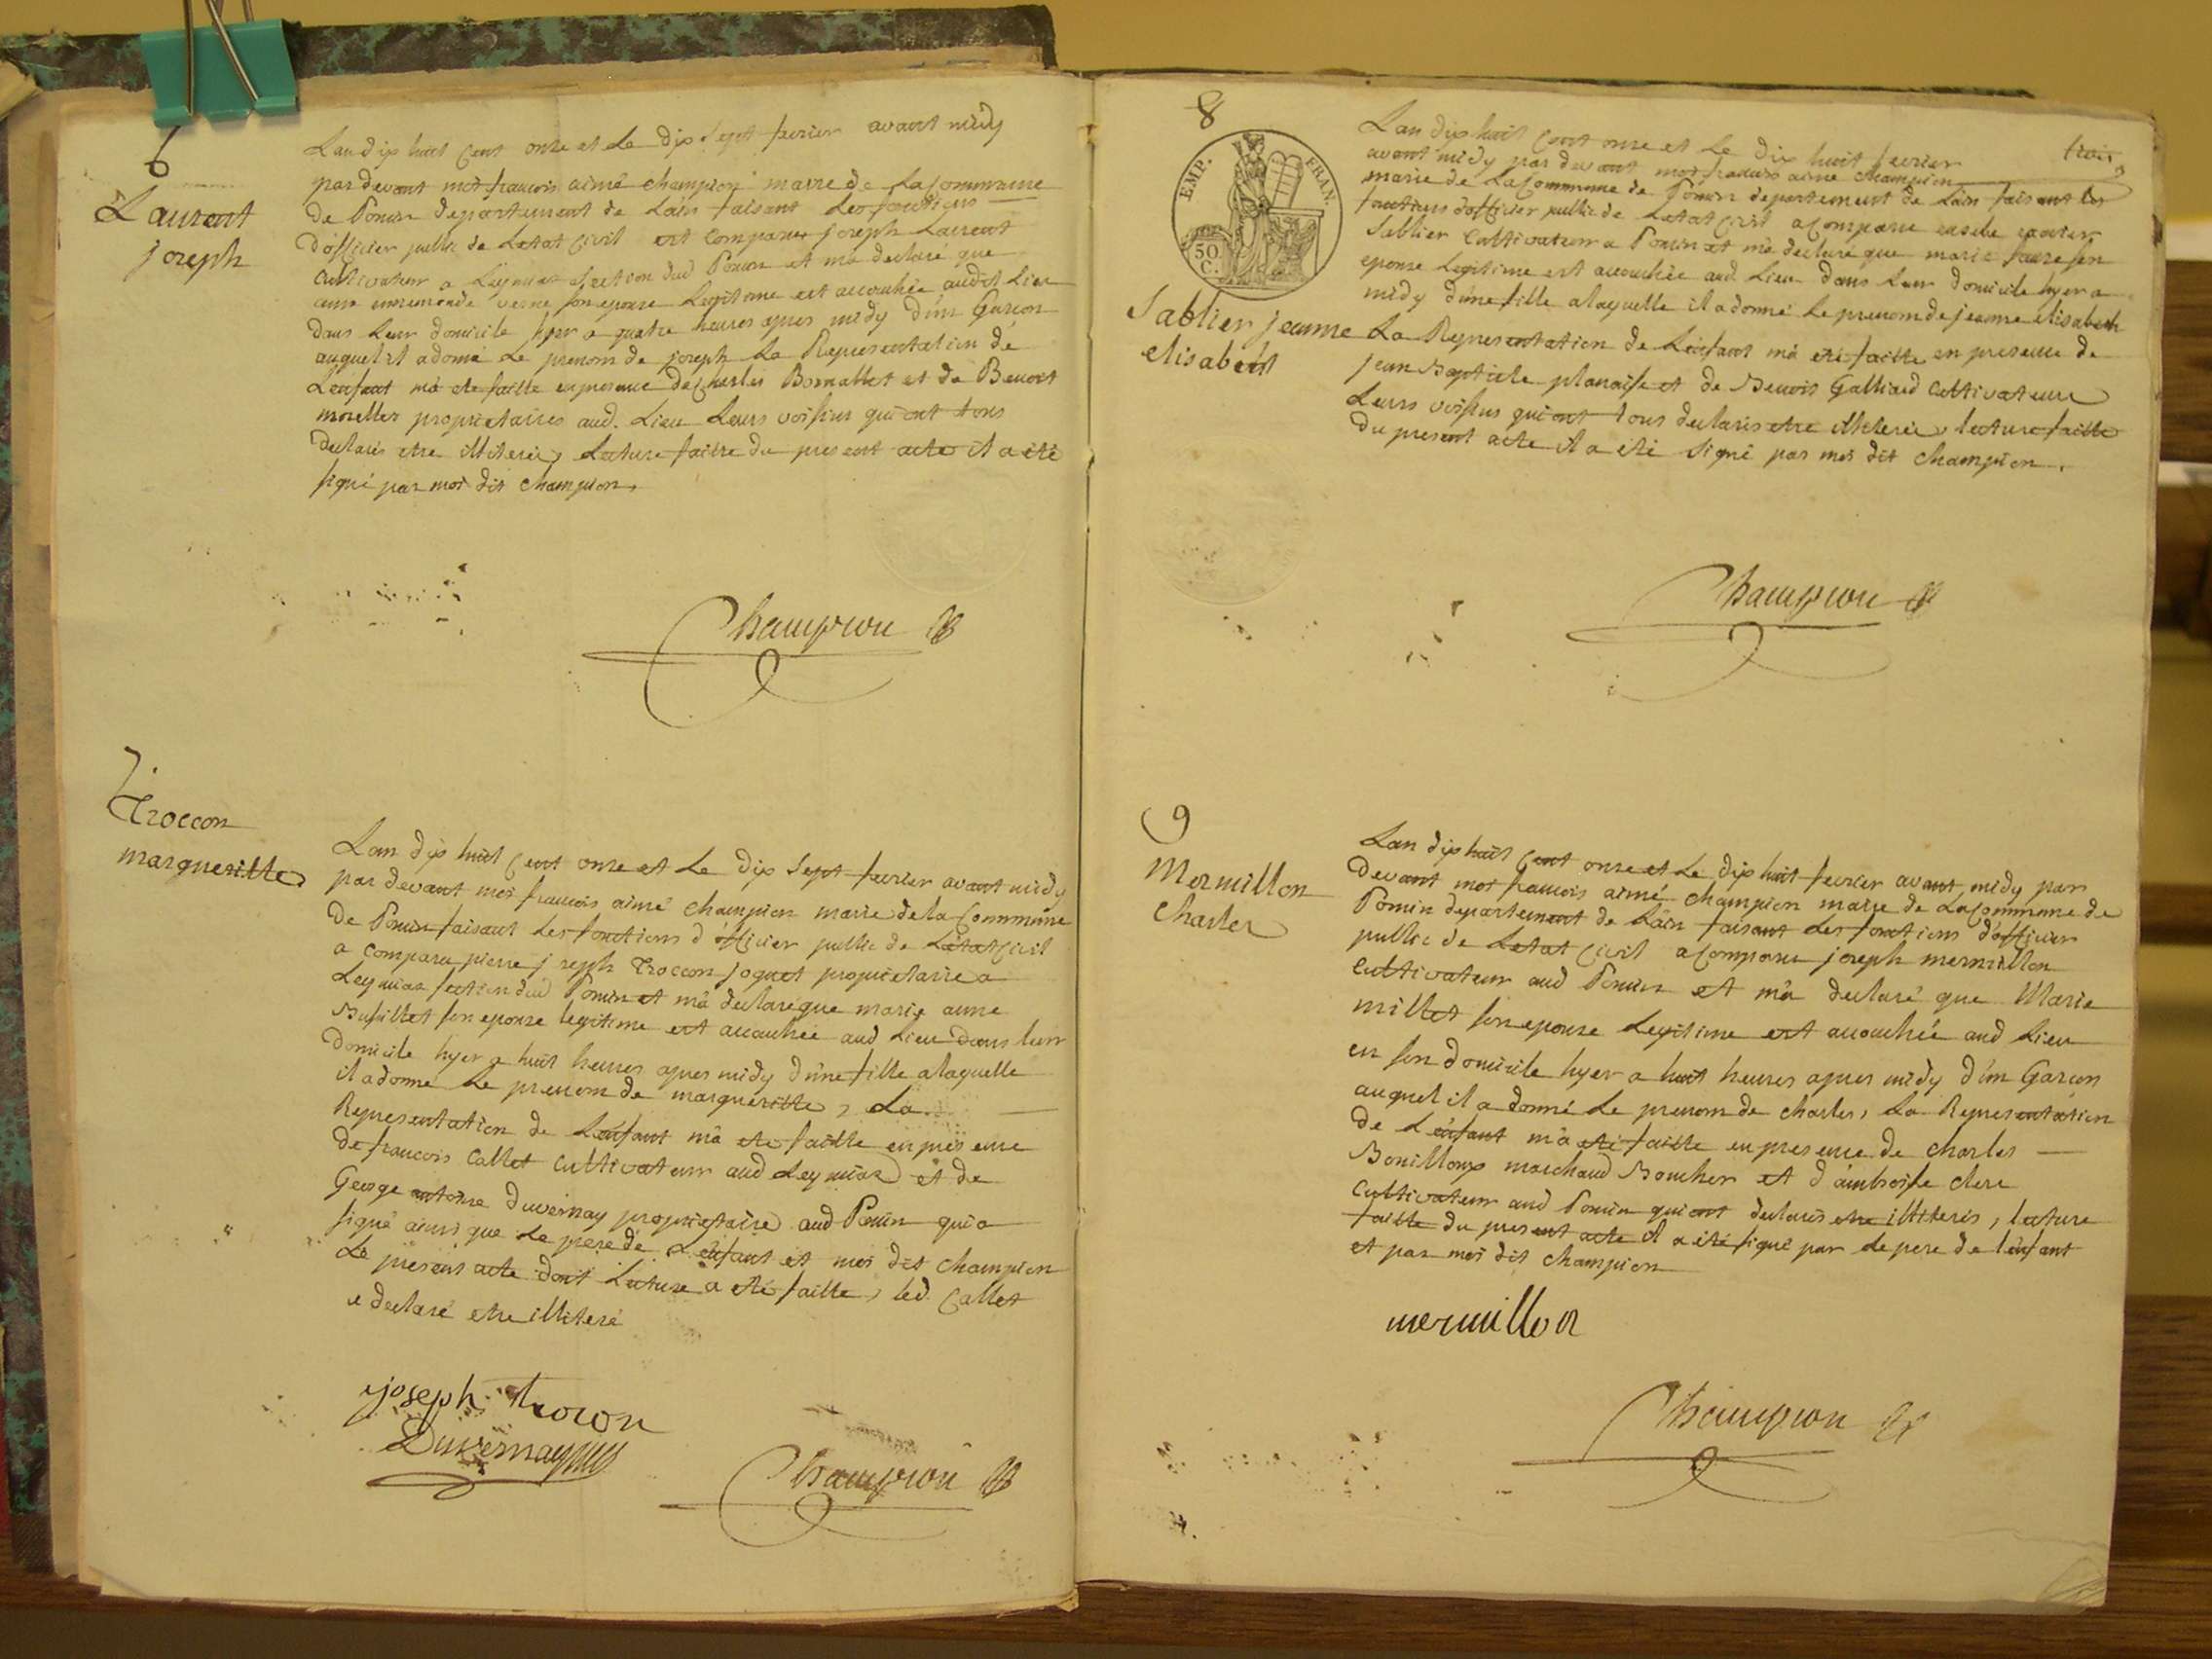 6
Laurent
joseph
Lan dix huit Cent onze et Le dix Sept fevrier avant midy
par devant moi francois aimé champion maire de La Commune
de Poncin departement de Lain faisant Les fonctions
d'officier public de Letat Civil est Comparu joseph Laurent
Cultivateur a Leymiaz section dud Poncin et ma declaré que
son epouse Legitime est accouchée audit Lieu
dans Leur domicile hyer a quatre heures apres midy d'un Garcon
auquel il a donné Le prenom de joseph La Representation de
L'enfant mà eté faitte en presence de Charles et de Benoit
proprietaires aud. Lieu Leurs voisins qui ont tous
declarés etre illiterés, Lecture faitte du present acte il a été
signé par moi dit champion,
Champion
7
Troccon
margueritte
Lan dix huit Cent onze et Le dix Sept fevrier avant midy
par devant moi francois aimé champion maire de la Commune
de Poncin faisant Les fonctions d'officier public de L'état Civil
a comparu pierre joseph Troccon joquet proprietaire a
Leymiaz section dud Poncin et mà declaré que marie anne
Bufillet son epouse legitime est accouchée aud Lieu dans leur
domicile hyer a huit heures apres midy d'une fille a laquelle
il a donné Le prenom de marguéritte, La
Representation de L'enfant mà eté faitte en presence
de francois Callet Cultivateur aud Leymiaz et de
George antoine Duvernay proprietaire aud Poncin qui a
signé ainsi que Le pere de L'enfant et moi dit champion
Le present acte dont Lecture a eté faitte, led. Callet
a declaré etre illiteré
joseph trocon
Duvernay
Champion
8
trois
EMP. FRAN.
50
C.
Sablier jeanne
elisabeth
Lan dix huit Cent onze et Le dix huit fevrier
avant midy par devant moi francois aimé champion
maire de La Commune de Poncin departement de Lain faisant Les
fonctions d'officier public de Letat Civil a Comparu
Sablier Cultivateur a Poncin et mà declaré que marie faure son
epouse Legitime est accouchée aud Lieu dans Leur domicile hyer a
midy d'une fille a laquelle il a donné Le prenom de jeanne elisabeth
La Representation de L'enfant mà eté faitte en presence de
jean Baptiste planaise et de Benoit Galliard Cultivateurs
Leurs voisins qui ont tous declarés etre illiterés, lecture faitte
du present acte il a été signé par moi dit champion.
Champion
9
Mermillon
Charles
Lan dix huit Cent onze et Le dix huit fevrier avant midy par
devant moi francois aimé champion maire de La Commune de
Poncin departement de Lain faisant Les fonctions d'officier
public de Letat Civil a Comparu joseph mermillon
Cultivateur aud Poncin et mà declaré que Marie
millet son epouse Legitime est accouchée aud Lieu
en son domicile hyer a huit heures apres midy d'un Garcon
auquel il a donné Le prenom de charles, La Representation
de L'enfant mà eté faitte en presence de charles
Bouilloux marchand Boucher et d'ambroise clerc
Cultivateur aud Poncin qui ont declarés etre illiterés, lecture
faitte du present acte il a été signé par le pere de l'enfant
et par moi dit champion
mermillon
Champion